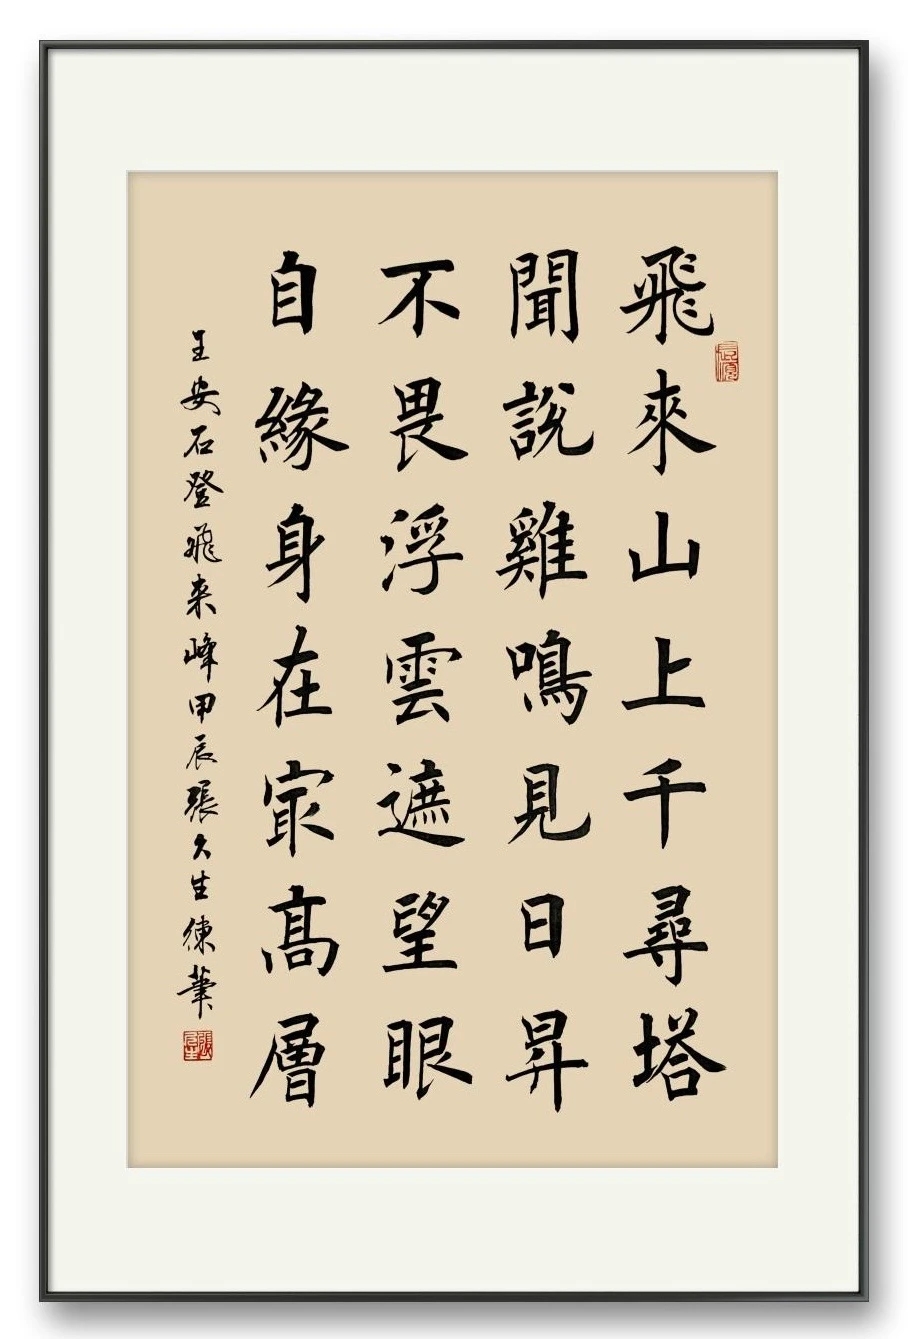 飛來山上千尋塔
聞說雞鳴見日昇
不畏浮雲遮望眼
自緣身在冣高層
王安石登飛来峰甲辰張久生練筆